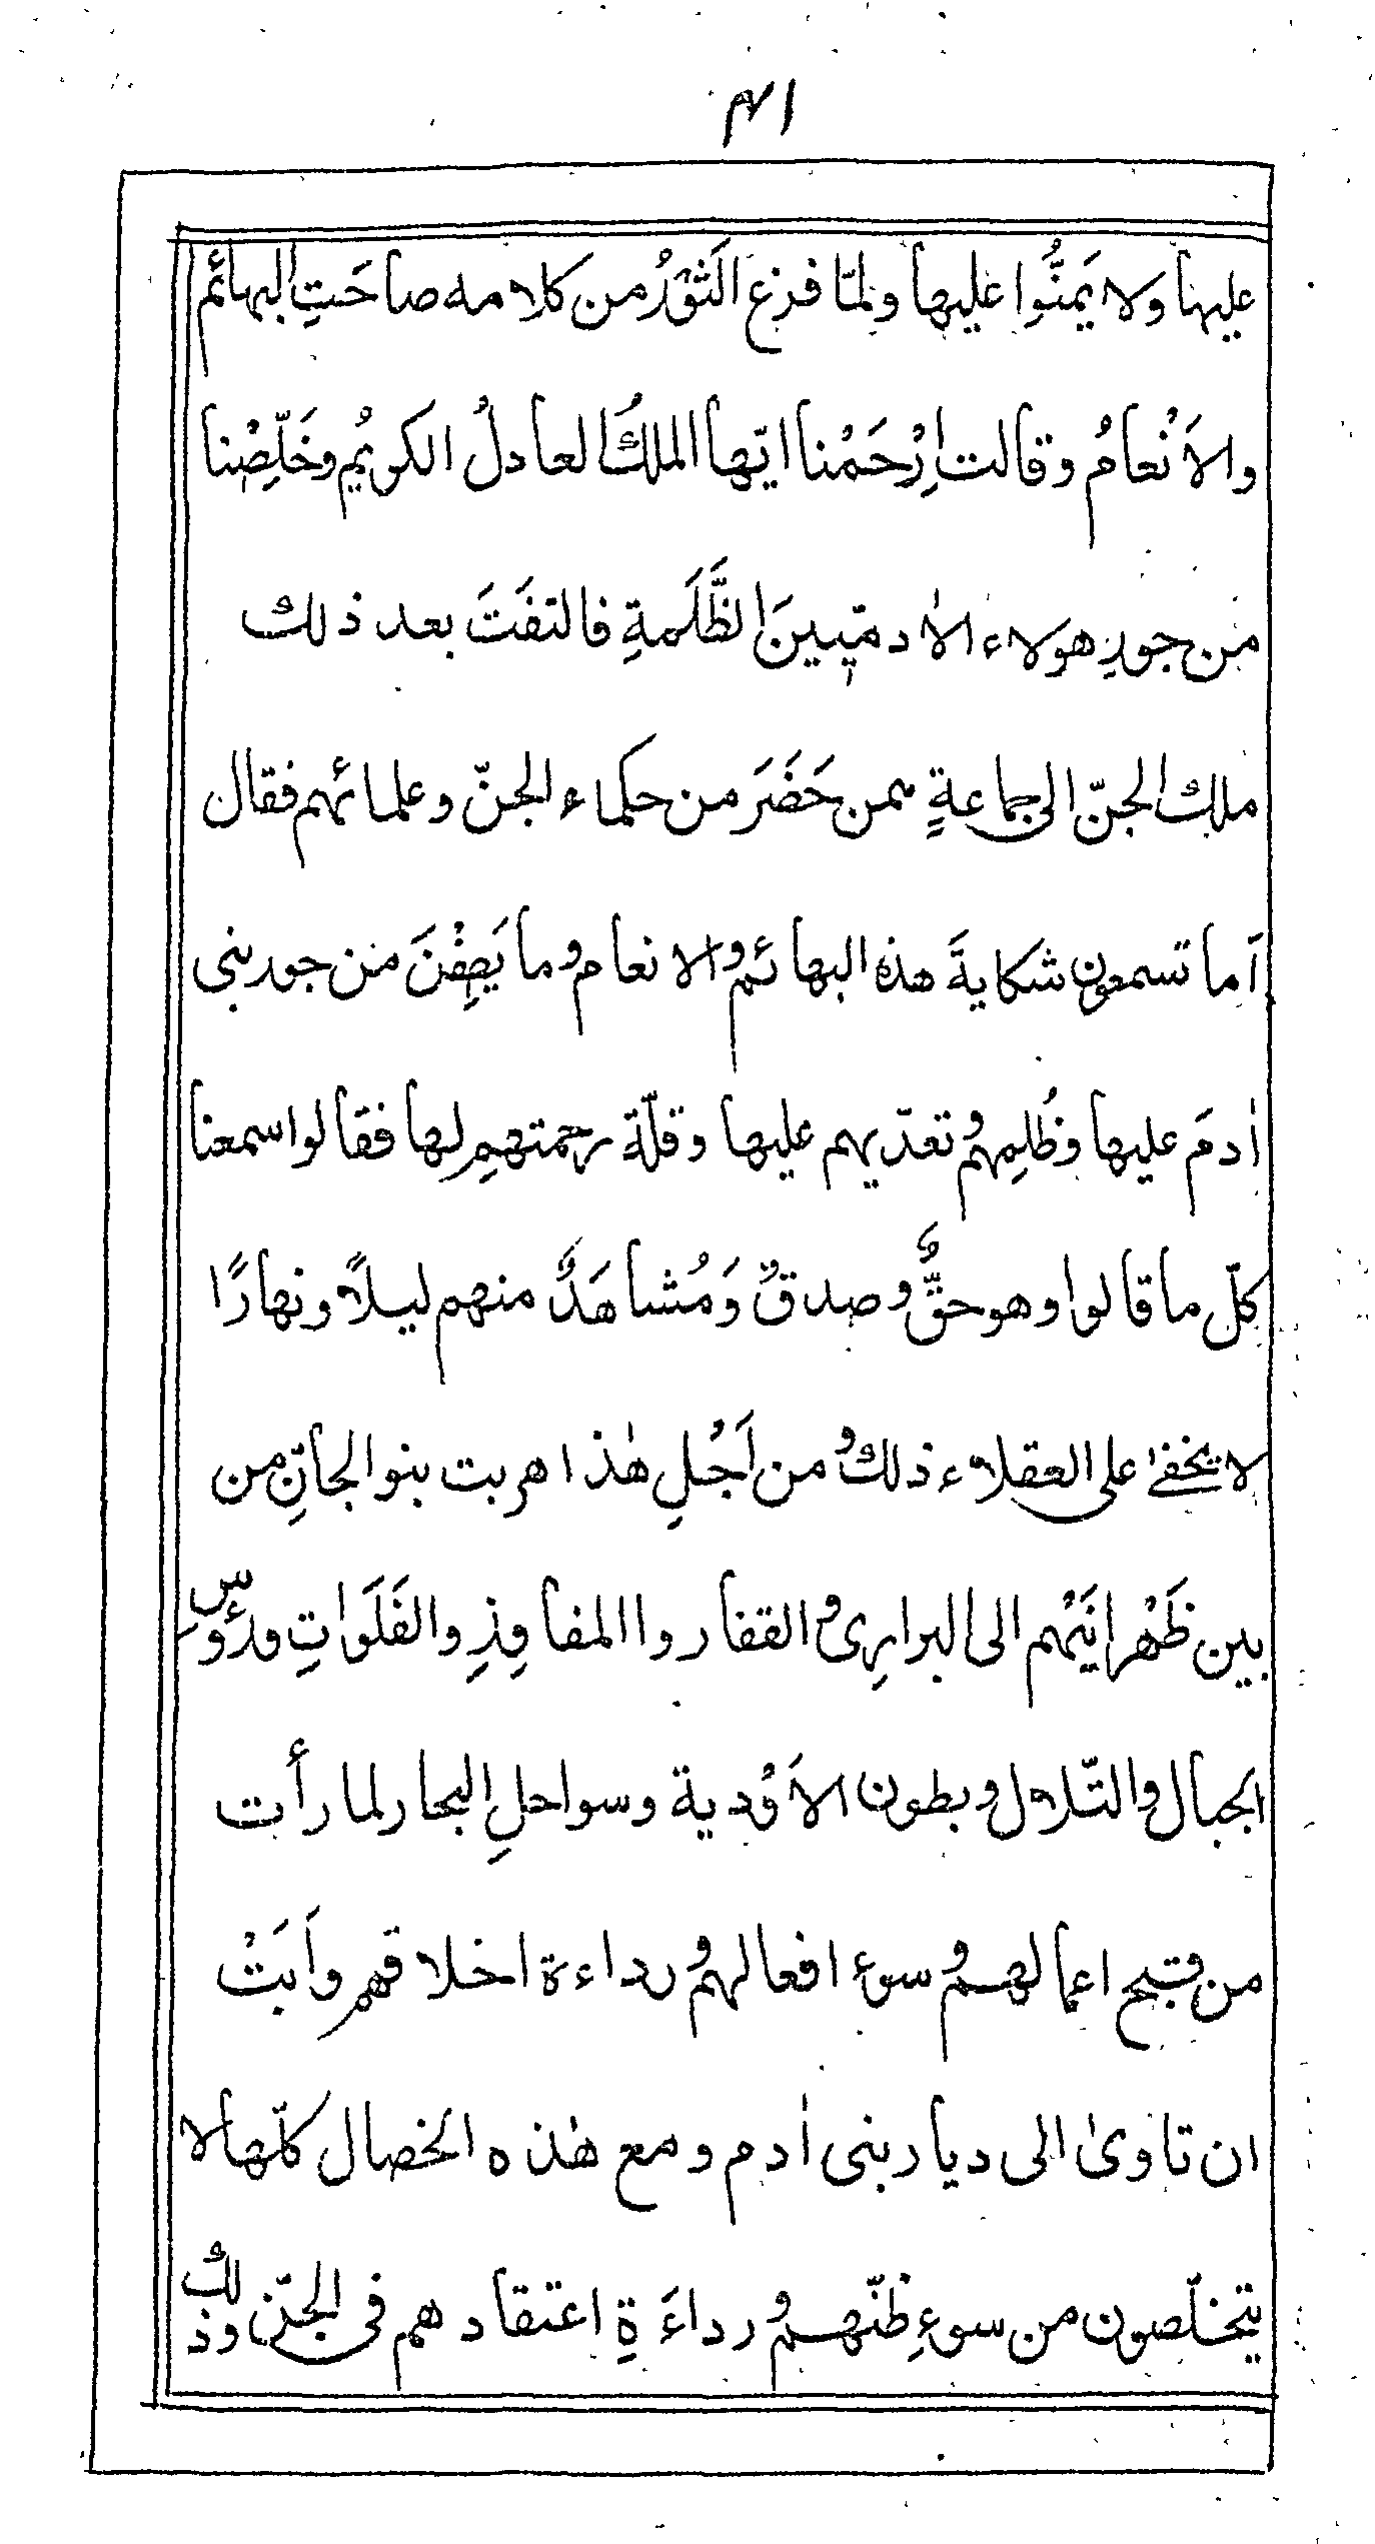 ۴۱
عليها ولا يَمنُّوا عليها ولمّا فرغ الثَورُ من كلامه صاحَتِ البهائم
والاَنْعامُ وقالت اِرْحَمْنا ايّها الملكُ العادلُ الكريمُ وخَلِّصْنا
من جورِ هولاء الاٰدميّينَ الظَّلَمةِ فالتفَتَ بعد ذلك
ملك الجنّ الى جماعةٍ ممن حَضَرَ من حكماء الجنّ وعلمائهم فقال
اَما تسمعون شكايةَ هذه البهائم والانعام وما يَصِفْنَ من جور بنى
اٰدمَ عليها وظُلمِهم وتعدّيهم عليها وقلّة رحمتهم لها فقالوا سمعنا
كلّ ما قالوا وهو حقٌّ وصدقٌ وَمُشاهَدٌ منهم ليلاً ونهارًا
لا يخفىٰ على العقلاء ذلك ومن اَجْلِ هٰذا هربت بنو الجانِّ من
بين ظَهْرانَيْهم الى البرارِى والقفار واالمفاوِذِ والفَلَواتِ ورُؤس
الجبال والتّلال وبطون الاَوْدية وسواحلِ البحار لما رأت
من قبيح اعمالهم وسوء افعالهم ورداءة اخلاقهم واَبَتْ
ان تاوىٰ الى ديار بنى اٰدم ومع هٰذه الخصال كلّها لا
يتخلّصون من سوءِ ظنّهم ورداءَةِ اعتقادهم فى الجنّ وذلك